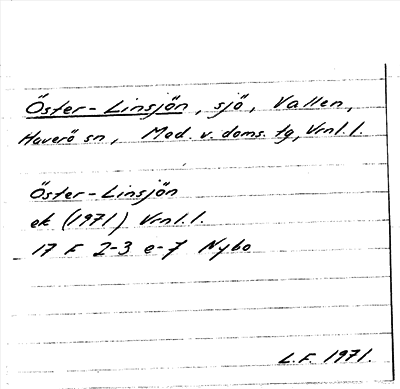 Öster-Linsjön, sjö, Vallen,
Haverö sn, Med. v. doms. tg, Vrnl.l.
Öster-Linsjön
ek (1971) Vrnl.l.
17 F 2-3 e-f Nybo
L.F. 1971.